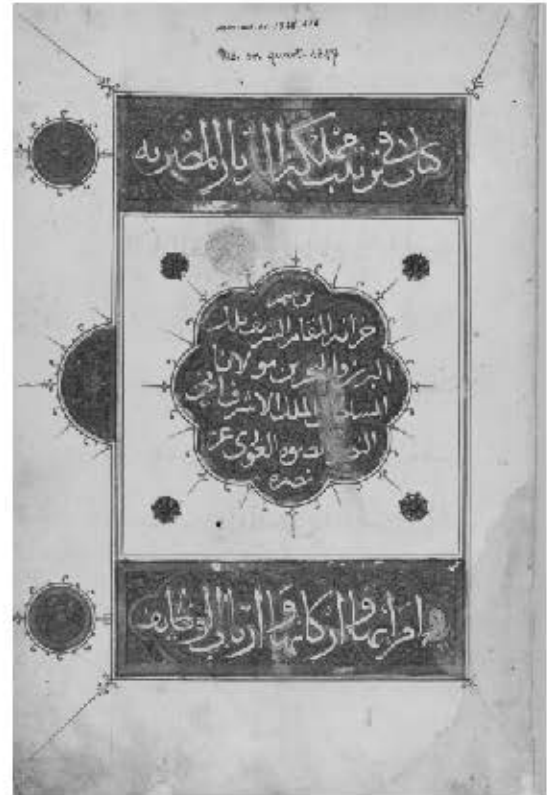 Ms. or. quart. 1817
كتاب في ترتيب مملكة الديار المصريه
برسم
خزانة المقام الشريف ملك
البرين والبحرين مولانا
السلطان الملك الاشرف ابي
النصر قانصوه الغوري عز
نصره
وامرائها واركانها وارباب الوظايف